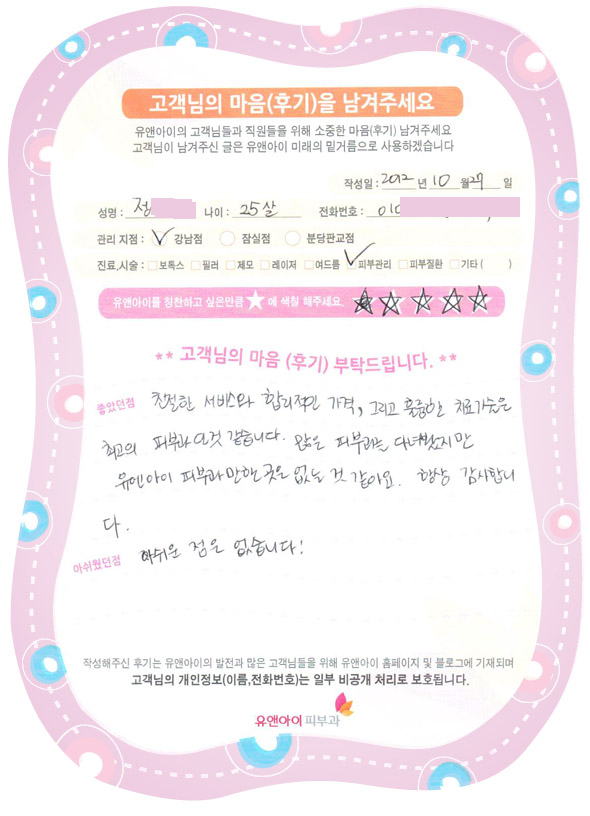 고객님의 마음(후기)을 남겨주세요
유앤아이의 고객님들과 직원들을 위해 소중한 마음(후기) 남겨주세요
고객님이 남겨주신 글은 유앤아이 미래의 밑거름으로 사용하겠습니다
작성일 : 2012 년 10 월 27 일
성명 : 정 나이 : 25살 전화번호 : 010
관리 지점 : 강남점 잠실점 분당판교점
진료,시술 : 보톡스 필러 제모 레이저 여드름 피부관리 피부질환 기타 ( )
유앤아이를 칭찬하고 싶은만큼 ★ 에 색칠 해주세요. ☆☆☆☆☆
** 고객님의 마음 (후기) 부탁드립니다. **
좋았던점 친절한 서비스와 합리적인 가격, 그리고 훌륭한 치료기술은
최고의 피부과인것 같습니다. 많은 피부과는 다녀봤지만
유엔아이 피부과만한 곳은 없는 것 같아요. 항상 감사합니
다.
아쉬웠던점 아쉬운 점은 없습니다!
작성해주신 후기는 유앤아이의 발전과 많은 고객님들을 위해 유앤아이 홈페이지 및 블로그에 기재되며
고객님의 개인정보(이름,전화번호)는 일부 비공개 처리로 보호됩니다.
유앤아이 피부과